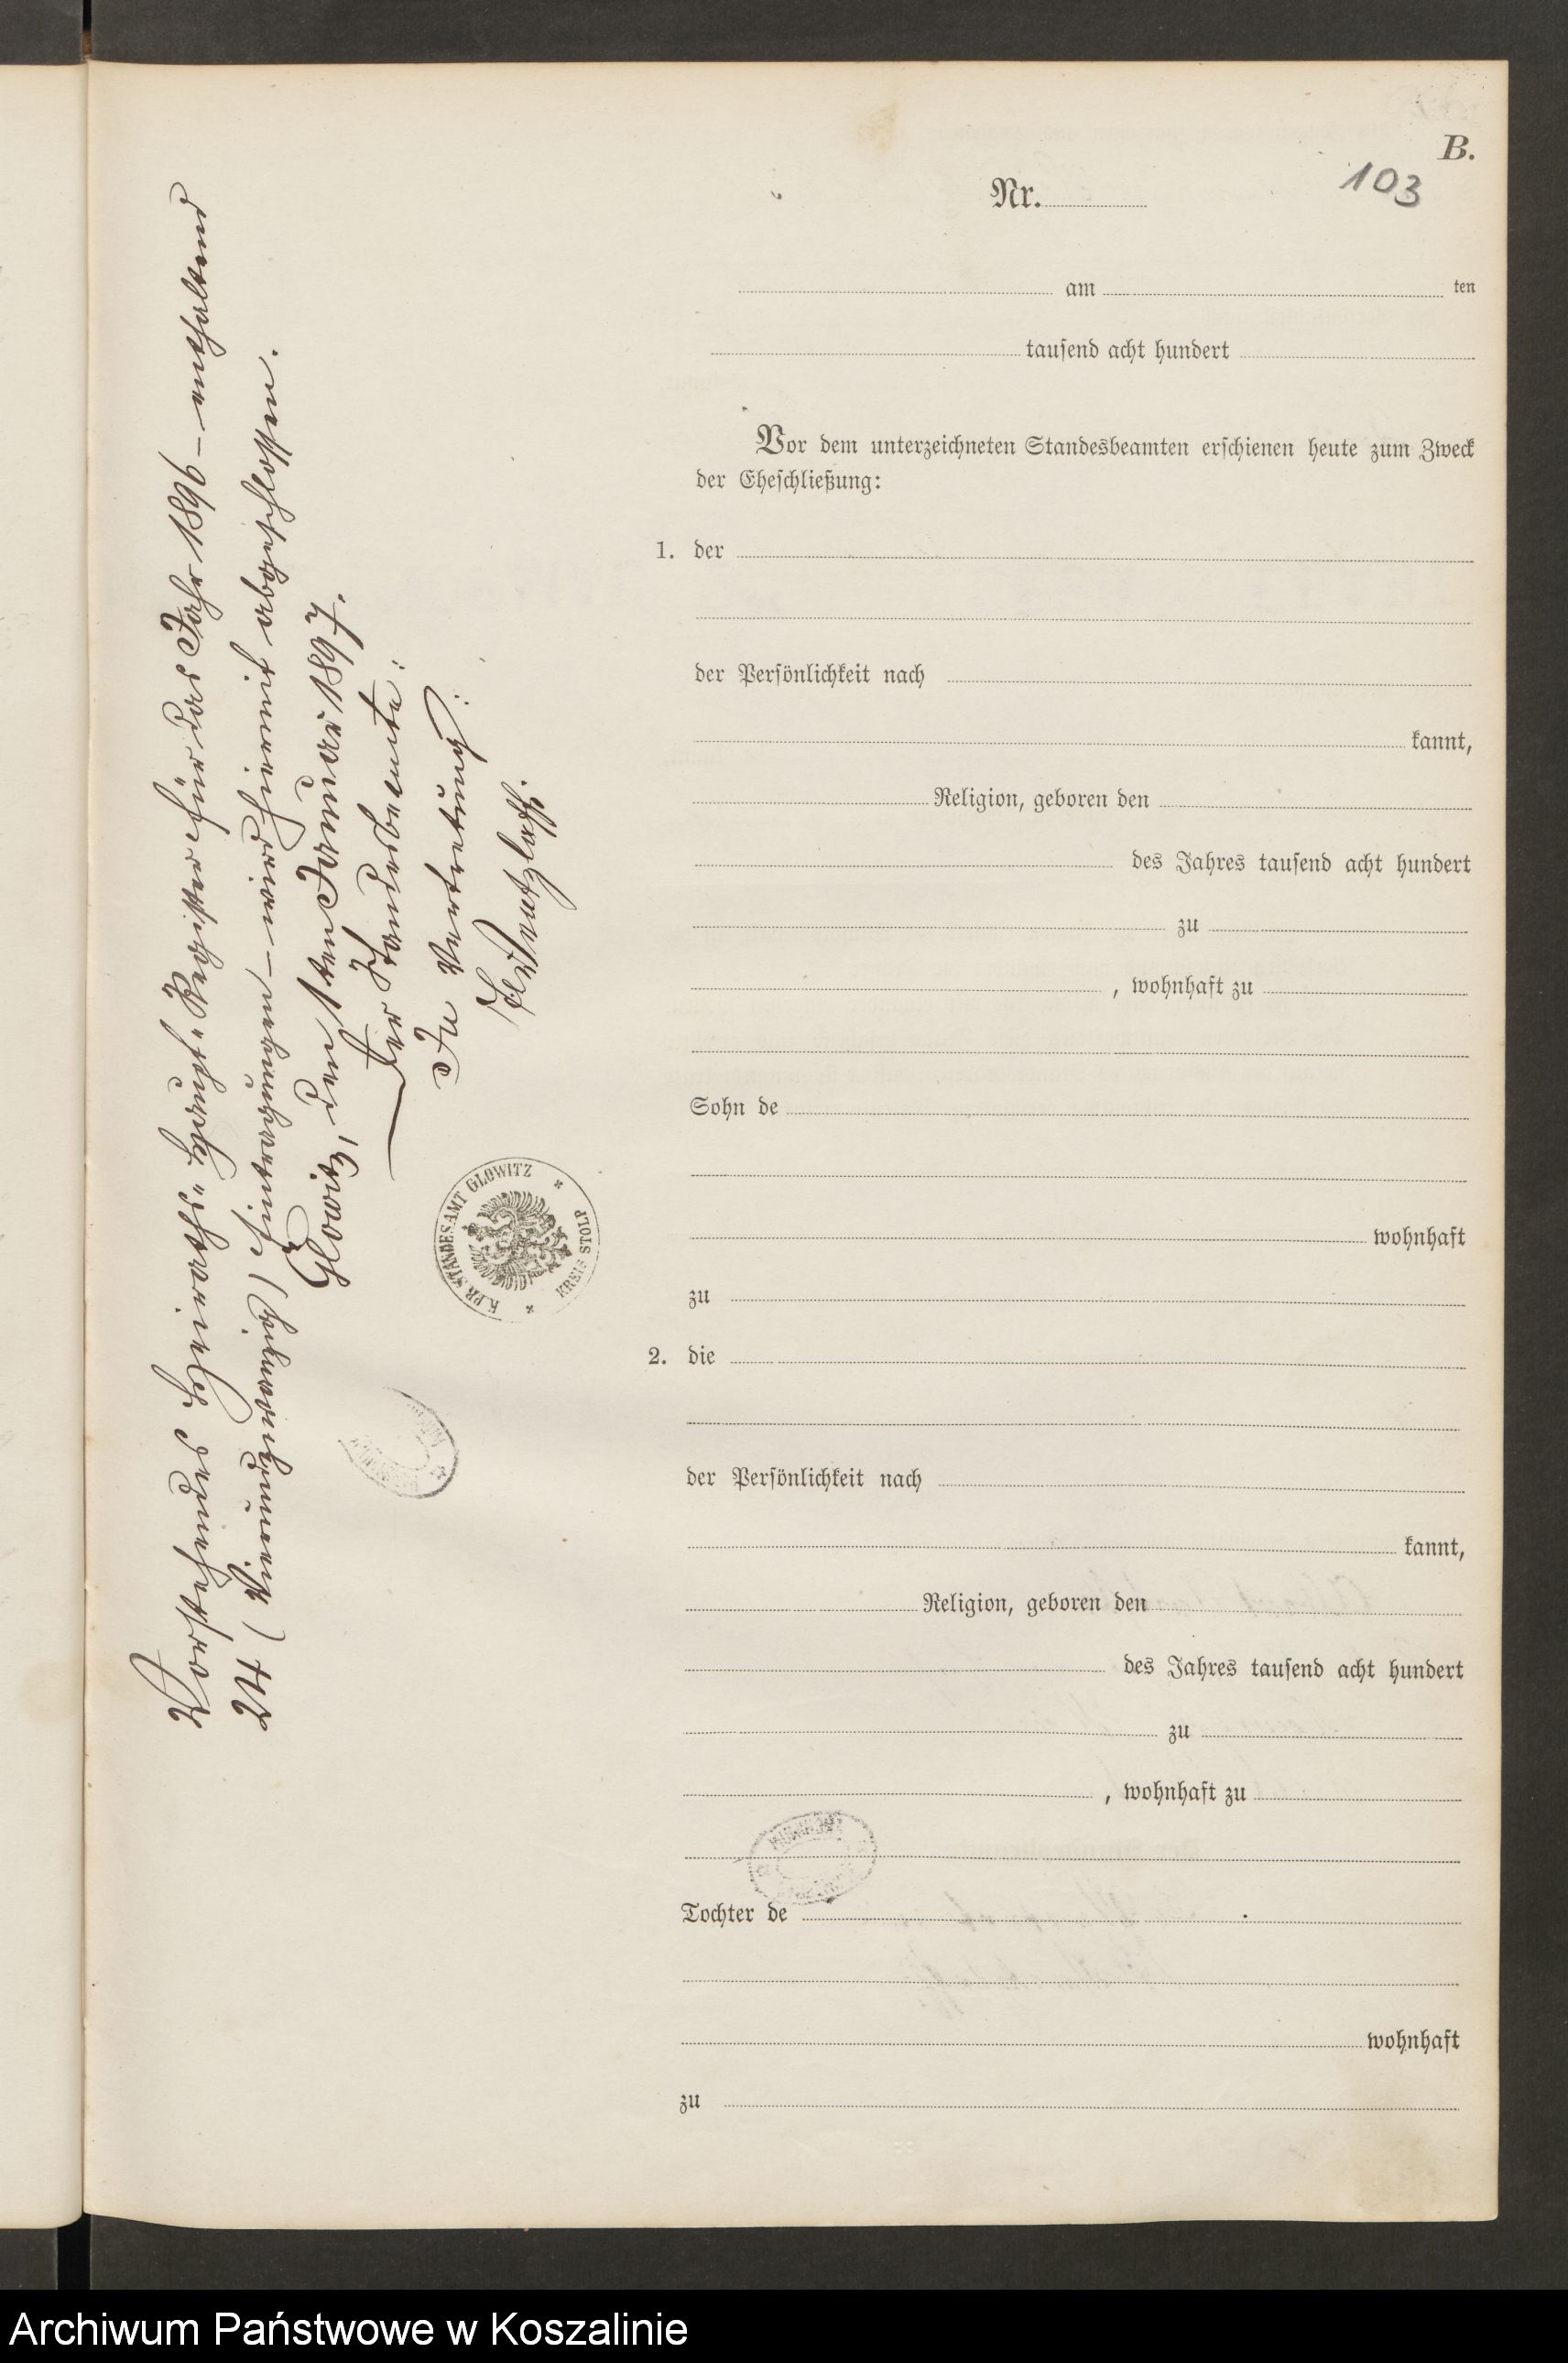 B.
103
Nr.
am ten
tausend acht hundert
Vor dem unterzeichneten Standesbeamten erschienen heute zum Zweck
der Eheschließung:
1. der
der Persönlichkeit nach
kannt,
Religion, geboren den
des Jahres tausend acht hundert
zu
, wohnhaft zu
Sohn de
wohnhaft
zu
2. die
der Persönlichkeit nach
kannt,
Religion, geboren den
des Jahres tausend acht hundert
zu
, wohnhaft zu
Tochter de
wohnhaft
zu
Vorstehendes Heiraths-Haupt-Register für das Jahr 1896 – enthaltend
24 (Vierundzwanzig) Eintragungen – wird hiermit abgeschlossen.
Glowitz, den 1ten Januar 1897.
Der Standesbeamte:
In Vertretung:
K. PR. STANDESAMT GLOWITZ
KREIS STOLP
Archiwum Państwowe w Koszalinie